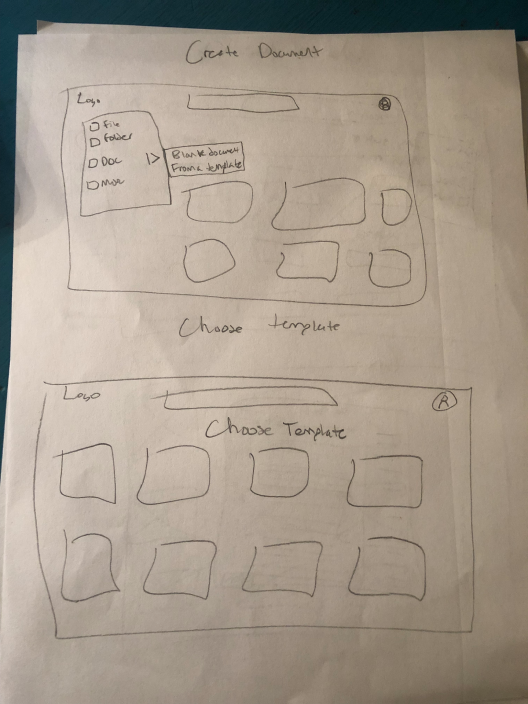 Create Document
Logo
R
File
Folder
Doc
Blank document
From a template
More
Choose template
Logo
R
Choose Template